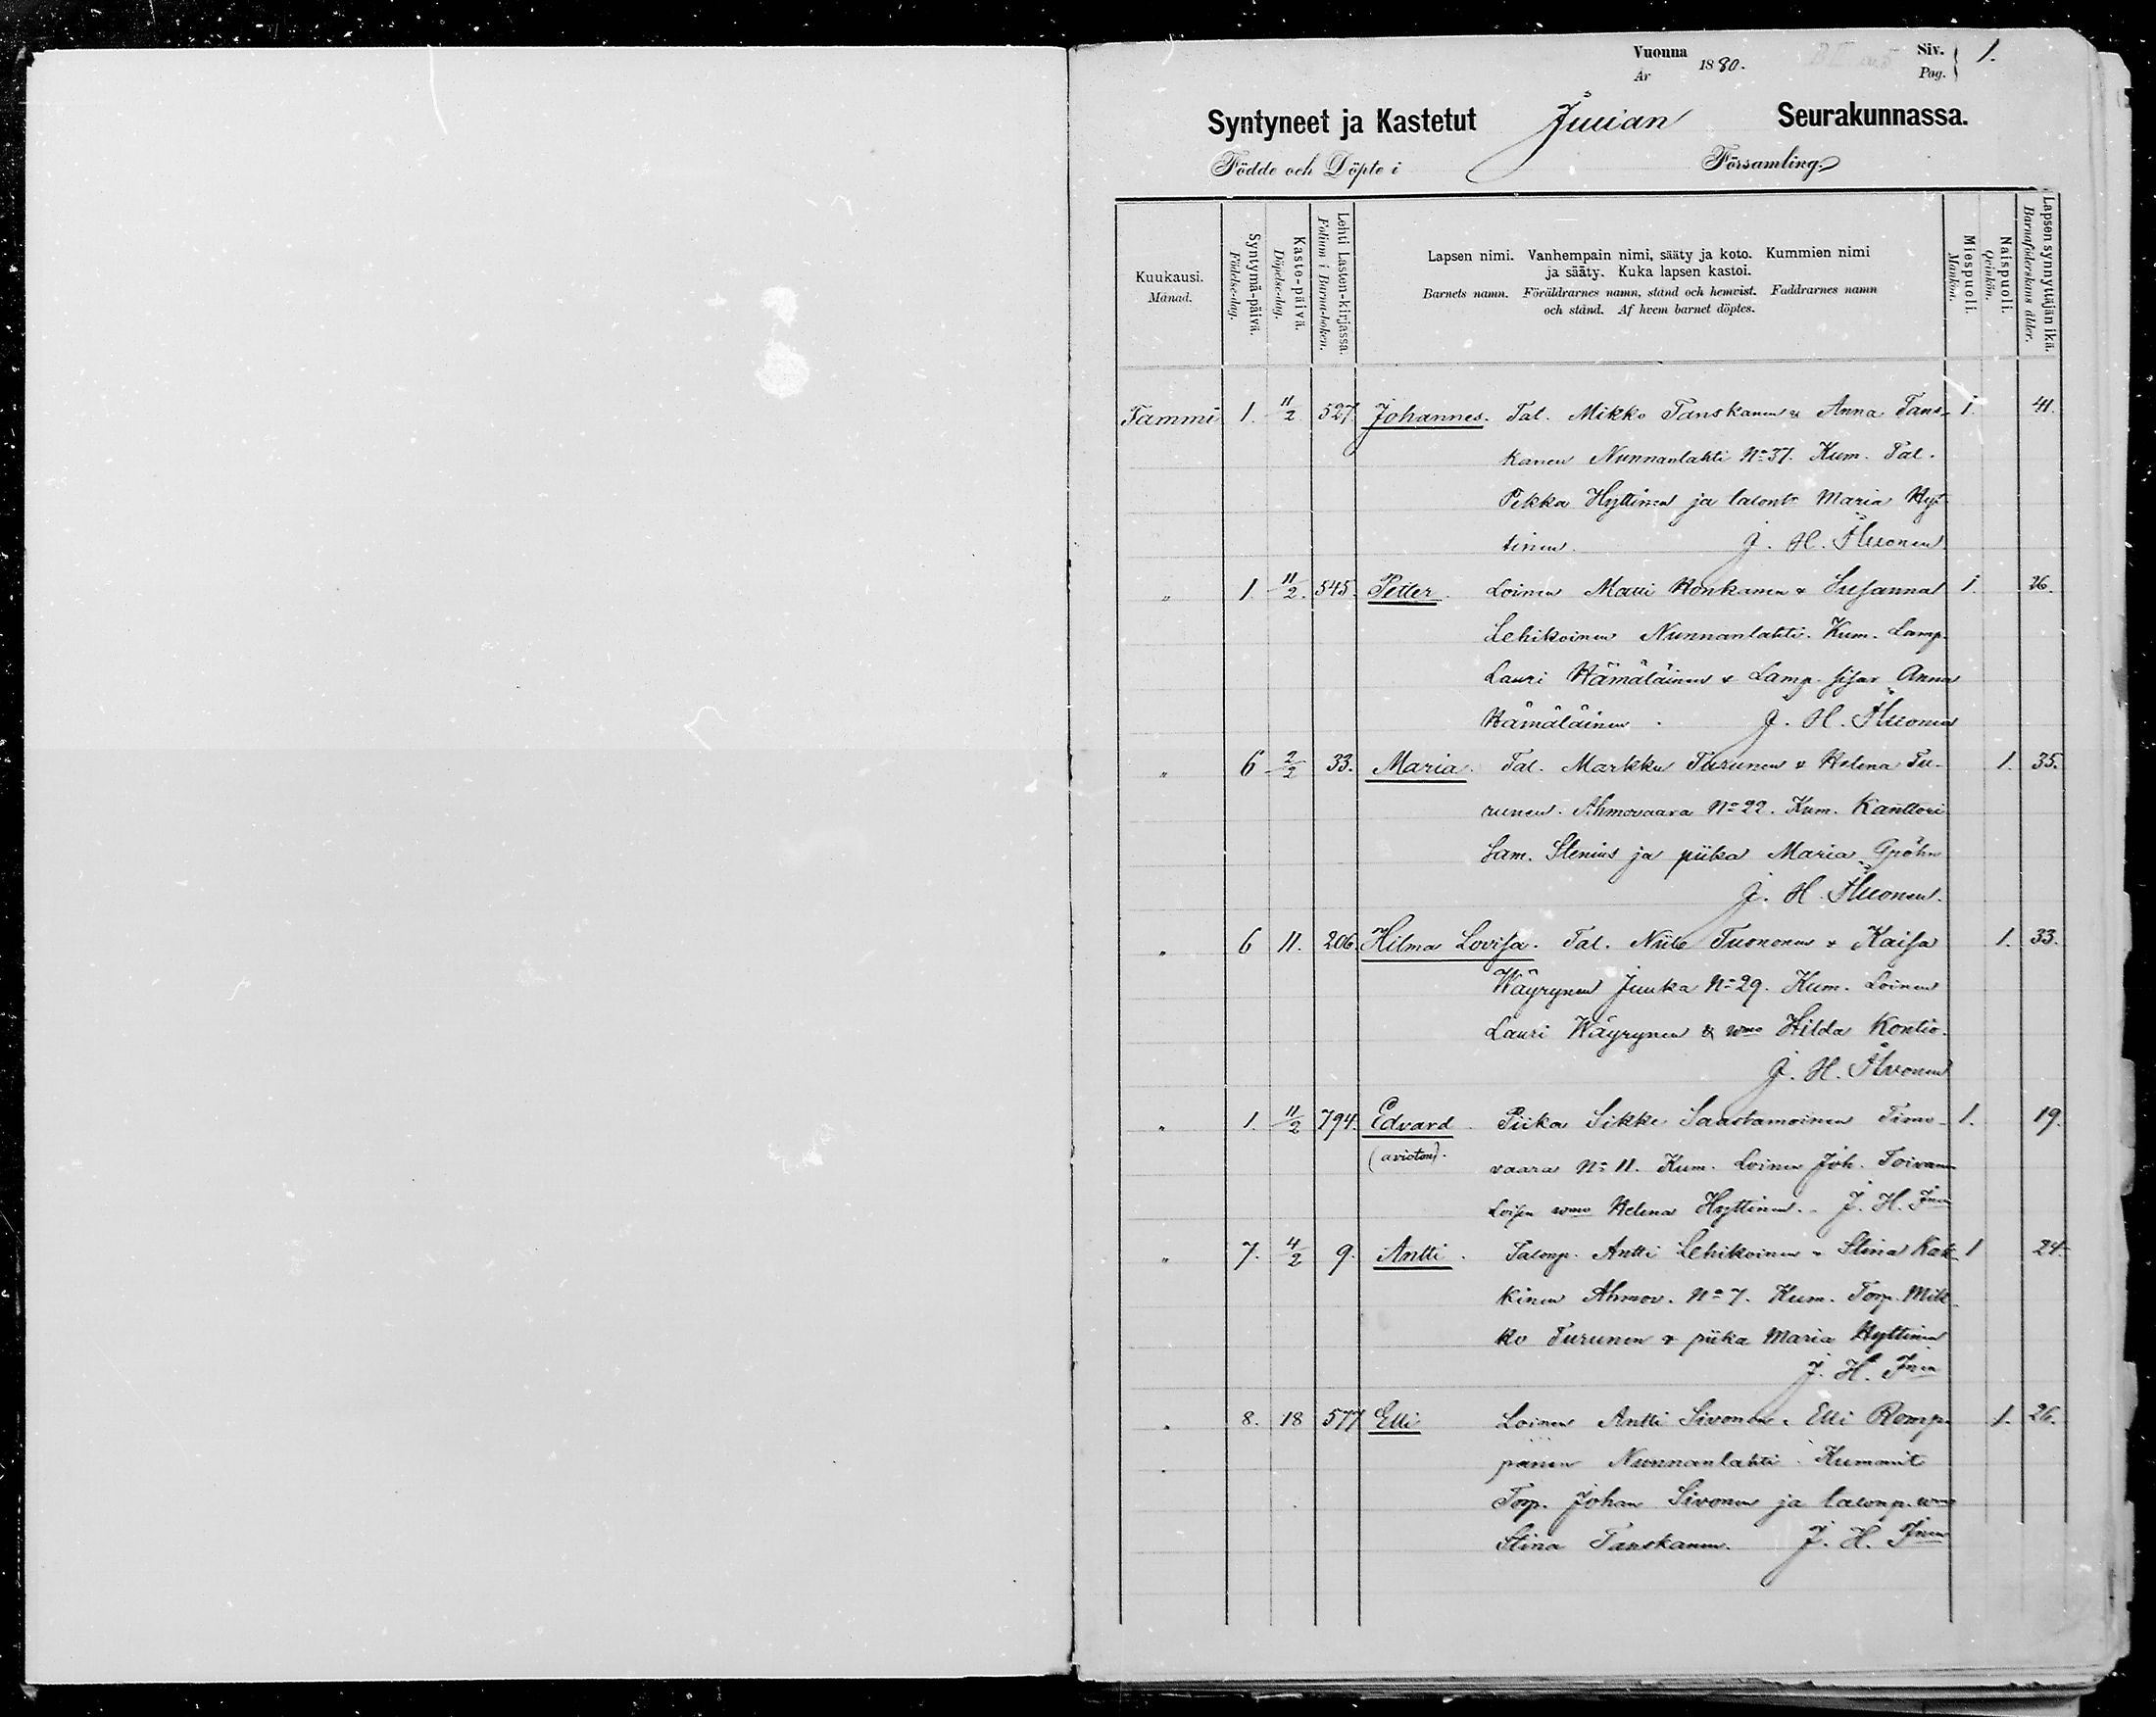 Vuonna 1880. Siv. 1.
År Pag.
Syntyneet ja Kastetut Juuan Seurakunnassa.
Födde och Döpte i Församling.
Kuukausi.
Månad.
Syntymä-päivä.
Födelse-dag.
Kaste-päivä.
Döpelse-dag.
Lehti Lasten-kirjassa.
Folium i Barna-boken.
Lapsen nimi. Vanhempain nimi, sääty ja koto. Kummien nimi
ja sääty. Kuka lapsen kastoi.
Barnets namn. Föräldrarnes namn, stånd och hemvist. Faddrarnes namn
och stånd. Af hvem barnet döptes.
Miespuoli.
Mankön.
Naispuoli.
Qvinkön.
Lapsen synnyttäjän ikä.
Barnaföderskans ålder.
Tammi 1. 11/2 527 Johannes. Tal. Mikko Tanskanen & Anna Tans- 1. 41.
kanen Nunnanlahti No 37. Kum. Tal.
Pekka Hyttinen ja talont Maria Hyt
tinen. J. H.
" 1. 11/2. 545. Petter. Loinen Matti Honkanen & Susanna 1. 26.
Lehikoinen Nunnanlahti. Kum. Lamp.
Lauri Hämäläinen & Lamp. sisar Anna
Hämäläinen. J. H.
" 6 2/2 33. Maria. Tal. Markku Turunen & Helena Tu- 1. 35.
runen. Ahmovaara No 22. Kum. Kanttori
Sam. Stenius ja piika Maria Gröhn
J. H.
" 6 11. 206. Hilma Lovisa. Tal. Niilo Tuononen & Kaisa 1. 33.
Wäyrynen Juuka No 29. Kum. Loinen
Lauri Wäyrynen & wmo Hilda Kontio.
J. H.
" 1. 11/2 794. Edvard Piika Sikke Saastamoinen Timo- 1. 19.
(avioton). vaara No 11. Kum. Loinen Joh. Toivanen
Loisen wmo Helena Hyttinen. J. H.
" 7. 4/2 9. Antti. Talonp. Antti Lehikoinen & Stina Kak- 1 24.
kinen Ahmov. No 7. Kum. Torp. Mik-
ko Turunen & piika Maria Hyttinen
J. H.
" 8. 18 577 Elli Loinen Antti Sivonen & Elli Romp- 1. 26.
panen Nunnanlahti. Kummit
Torp. Johan Sivonen ja talonp. wmo
Stina Tanskanen. J. H.